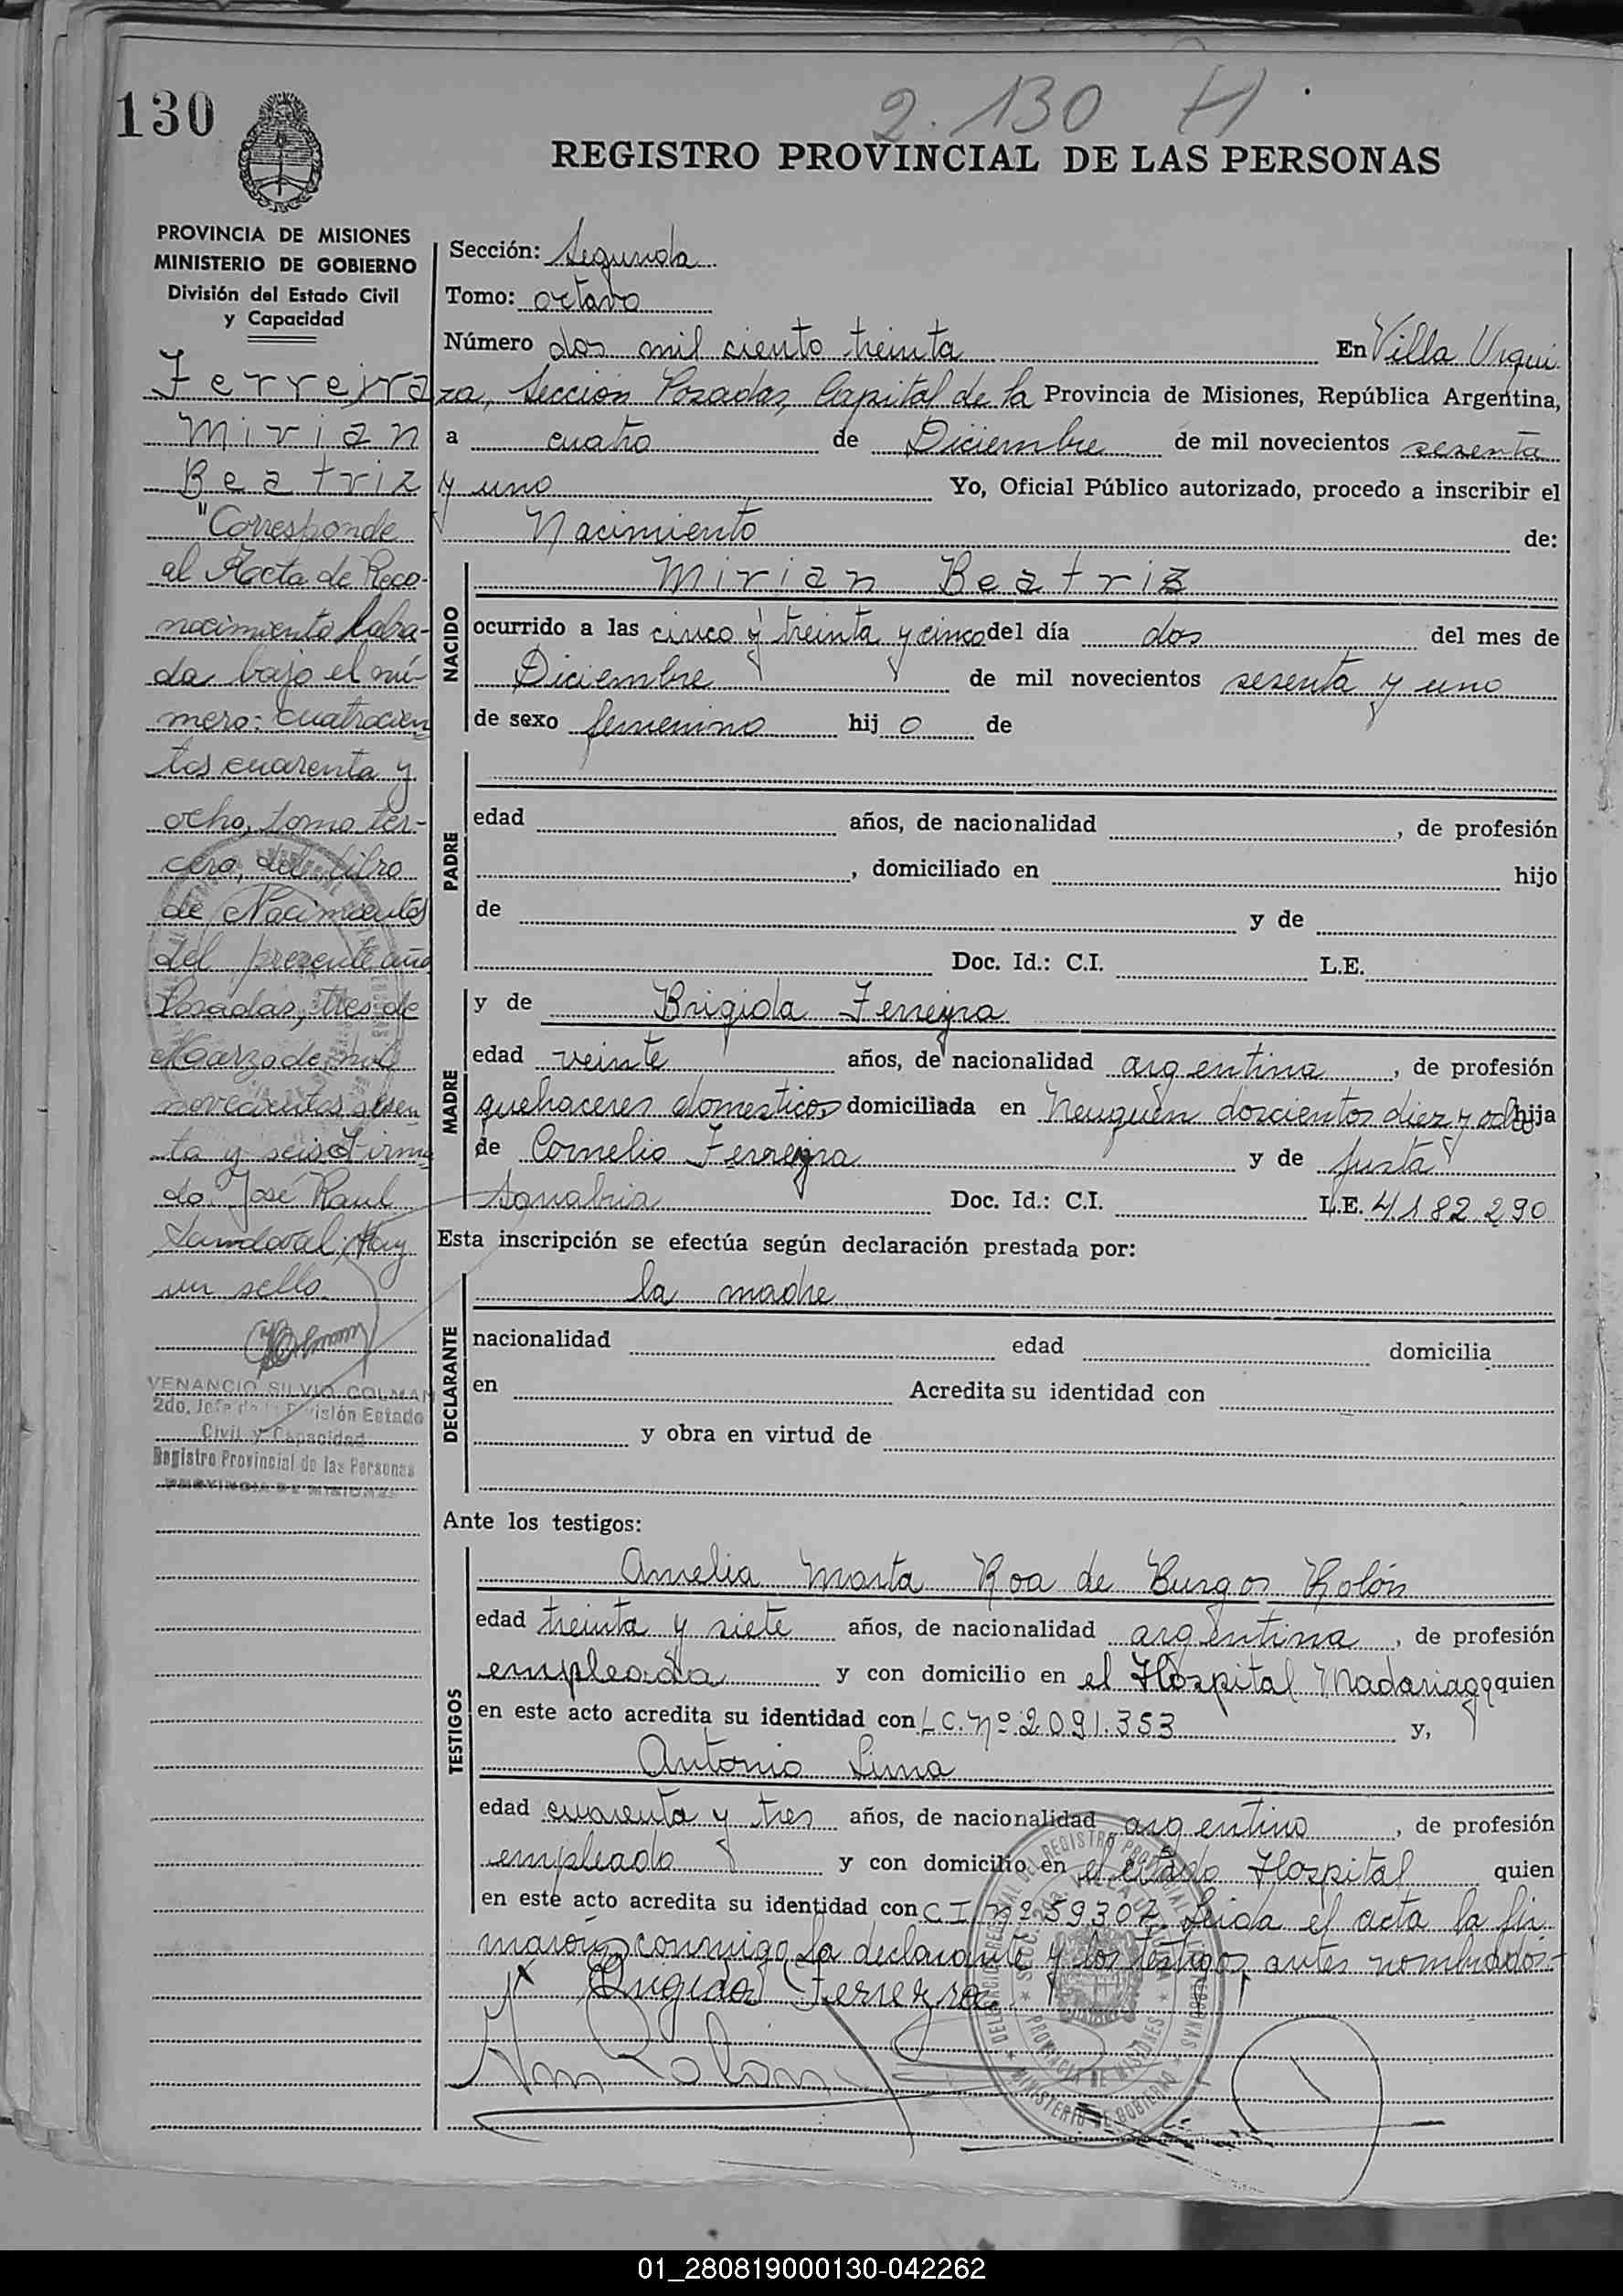 130
2.130 H
REGISTRO PROVINCIAL DE LAS PERSONAS
PROVINCIA DE MISIONES
MINISTERIO DE GOBIERNO
División del Estado Civil
y Capacidad
Ferreyra
Mirian
Beatriz
"Corresponde
al Acta de Reco-
nocimiento labra-
da bajo el nú-
mero: cuatrocien
tos cuarenta y
ocho, tomo ter-
cero, del libro
de Nacimientos
del presente año
Posadas, tres de
Marzo de mil
novecientos sesen
ta y seis Firma
do. José Raul
Sandoval, Hay
un sello.
VENANCIO SILVIO COLMAN
2do. Jefe de la División Estado
Civil y Capacidad
Registro Provincial de las Personas
PROVINCIA DE MISIONES
Sección: Segunda
Tomo: octavo
Número dos mil ciento treinta En Villa Urqui
za, Sección Posadas, Capital de la Provincia de Misiones, República Argentina,
a cuatro de Diciembre de mil novecientos sesenta
y uno Yo, Oficial Público autorizado, procedo a inscribir el
Nacimiento de:
NACIDO
Mirian Beatriz
ocurrido a las cinco y treinta y cinco del día dos del mes de
Diciembre de mil novecientos sesenta y uno
de sexo femenino hijo de
PADRE
edad años, de nacionalidad , de profesión
, domiciliado en hijo
de y de
Doc. Id.: C.I. L.E.
MADRE
y de Brigida Ferreyra
edad veinte años, de nacionalidad argentina, de profesión
quehaceres domesticos domiciliada en Neuquén doscientos diez y ocho hija
de Cornelio Ferreyra y de Justa
Sanabria Doc. Id.: C.I. L.E. 4.182.290
Esta inscripción se efectúa según declaración prestada por:
DECLARANTE
la madre
nacionalidad edad domicilia
en Acredita su identidad con
y obra en virtud de
Ante los testigos:
TESTIGOS
Amelia Marta Roa de Burgos Rolón
edad treinta y siete años, de nacionalidad argentina, de profesión
empleada y con domicilio en el Hospital Madariaga quien
en este acto acredita su identidad con L.C. Nº 2.091.353 y,
Antonio Lima
edad cuarenta y tres años, de nacionalidad argentino, de profesión
empleado y con domicilio en el citado Hospital quien
en este acto acredita su identidad con C I Nº 59307. Leida el acta la fir
maron conmigo la declarante y los testigos antes nombrados.-
Brigida Ferreyra
DELEGACION REGIONAL DEL REGISTRO PROVINCIAL DE LAS PERSONAS
SECC. 2da. VILLA URQUIZA
PROVINCIA DE MISIONES
MINISTERIO DE GOBIERNO
01_280819000130-042262